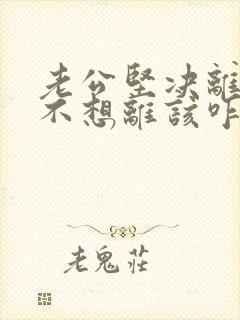 老公堅决離
不想離該咋
老鬼莊